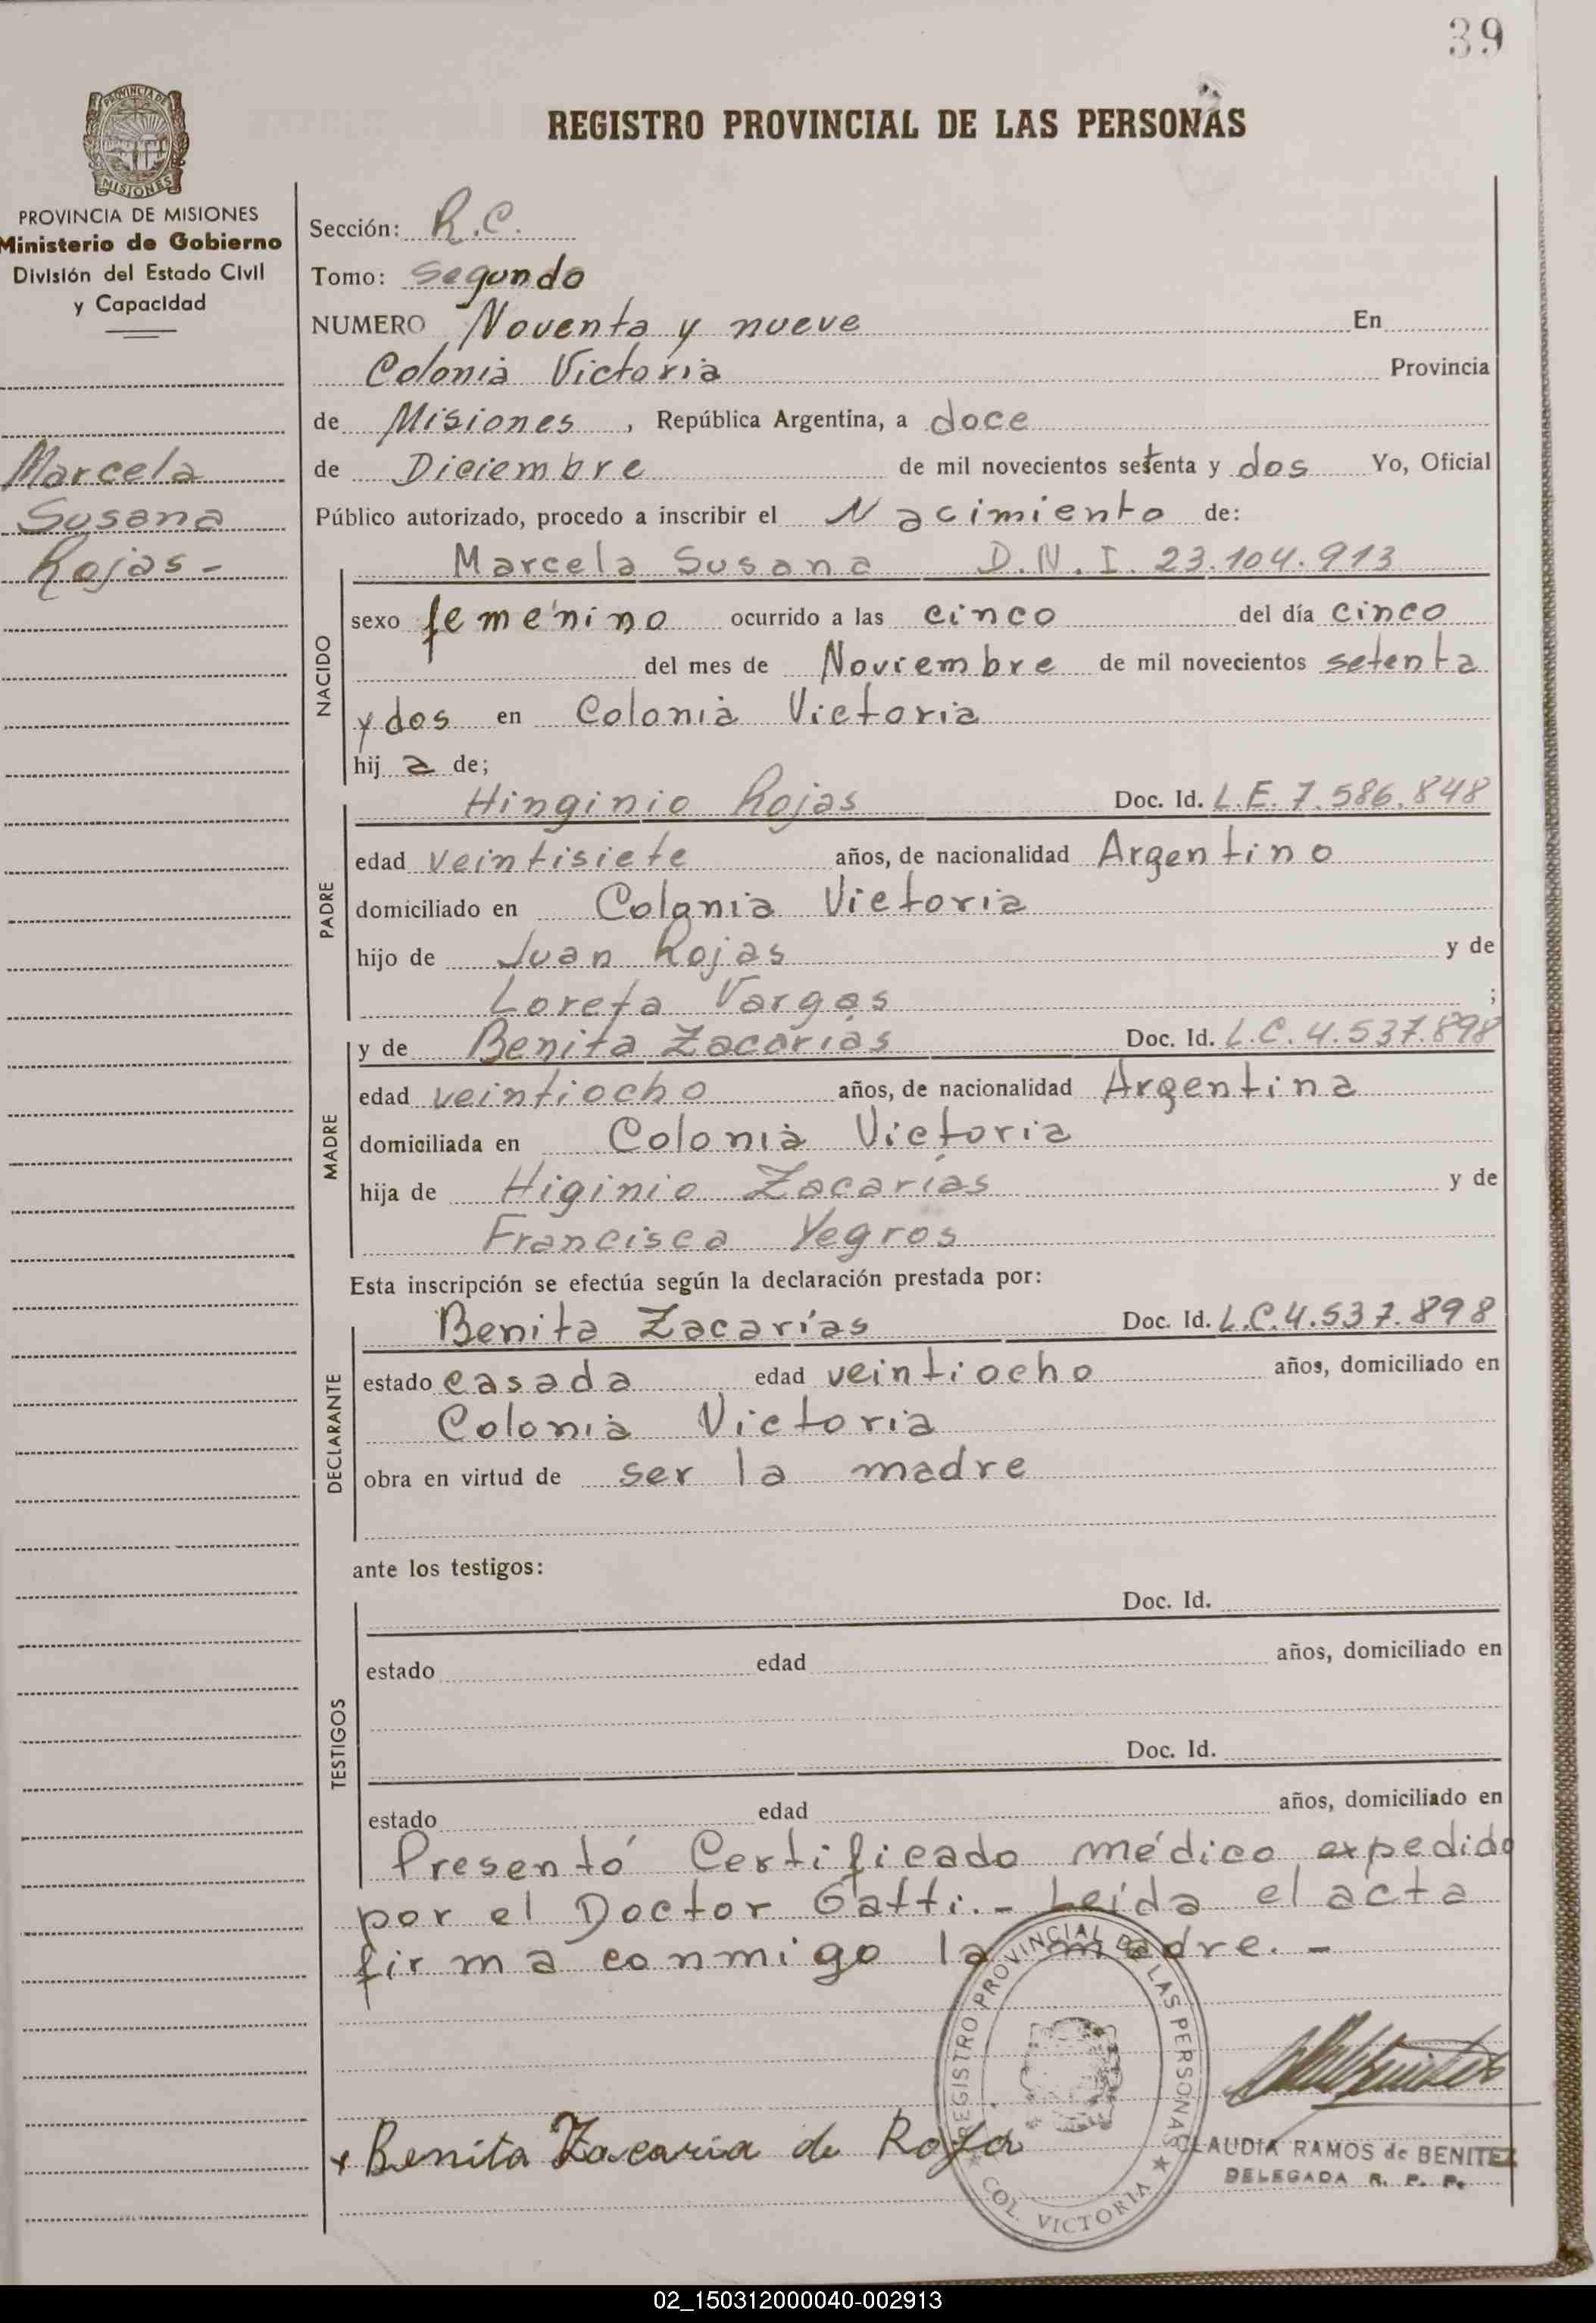 39
REGISTRO PROVINCIAL DE LAS PERSONAS
PROVINCIA DE MISIONES
PROVINCIA DE MISIONES
Ministerio de Gobierno
División del Estado Civil
y Capacidad
Marcela
Susana
Rojas -
Sección: R.C.
Tomo: Segundo
NUMERO Noventa y nueve En
Colonia Victoria Provincia
de Misiones, República Argentina, a doce
de Diciembre de mil novecientos setenta y dos Yo, Oficial
Público autorizado, procedo a inscribir el Nacimiento de:
Marcela Susana D.N.I. 23.104.913
NACIDO
sexo femenino ocurrido a las cinco del día cinco
del mes de Noviembre de mil novecientos setenta
y dos en Colonia Victoria
hij a de;
PADRE
Hinginio Rojas Doc. Id. L.E. 7.586.848
edad veintisiete años, de nacionalidad Argentino
domiciliado en Colonia Victoria
hijo de Juan Rojas y de
Loreta Vargas ;
MADRE
y de Benita Zacarías Doc. Id. L.C. 4.537.898
edad veintiocho años, de nacionalidad Argentina
domiciliada en Colonia Victoria
hija de Higinio Zacarías y de
Francisca Yegros
Esta inscripción se efectúa según la declaración prestada por:
DECLARANTE
Benita Zacarías Doc. Id. L.C. 4.537.898
estado casada edad veintiocho años, domiciliado en
Colonia Victoria
obra en virtud de ser la madre
ante los testigos:
TESTIGOS
Doc. Id.
estado edad años, domiciliado en
Doc. Id.
estado edad años, domiciliado en
Presentó Certificado médico expedido
por el Doctor Gatti. - Leída el acta
firma conmigo la madre. -
REGISTRO PROVINCIAL DE LAS PERSONAS
COL. VICTORIA
Benita Zacaria de Roja
CLAUDIA RAMOS de BENITEZ
DELEGADA R. P. P.
02_150312000040-002913